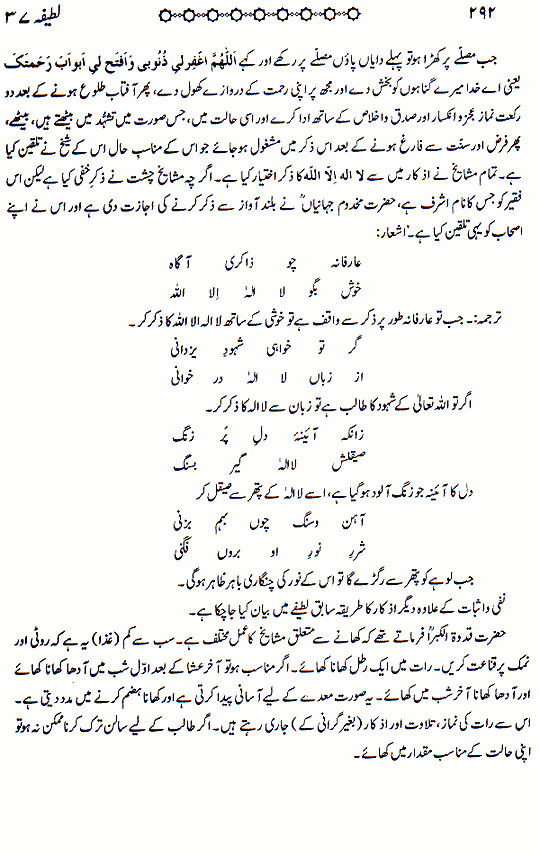 ۲۹۲ لطیفہ ۳۷
جب مصلّے پر کھڑا ہو تو پہلے دایاں پاؤں مصلّے پر رکھے اور کہے اَللّٰهُمَّ اغْفِرلِي ذُنُوبِي وَافْتَح لِي اَبوابَ رَحْمَتِکَ
یعنی اے خدا میرے گناہوں کو بخش دے اور مجھ پر اپنی رحمت کے دروازے کھول دے، پھر آفتاب طلوع ہونے کے بعد دو
رکعت نماز عجز و انکسار اور صدق و اخلاص کے ساتھ ادا کرے اور اسی حالت میں، جس صورت میں تشہّد میں بیٹھتے ہیں، بیٹھے،
پھر فرض اور سنّت سے فارغ ہونے کے بعد اس ذکر میں مشغول ہو جائے جو اس کے مناسب حال اس کے شیخ نے تلقین کیا
ہے۔ تمام مشایخ نے اذکار میں سے لا اله اِلّا اللّٰه کا ذکر اختیار کیا ہے۔ اگرچہ مشایخ چشت نے ذکرِ خفی کیا ہے لیکن اس
فقیر کو جس کا نام اشرف ہے، حضرت مخدوم جہانیاںؒ نے بلند آواز سے ذکر کرنے کی اجازت دی ہے اور اس نے اپنے
اصحاب کو یہی تلقین کیا ہے۔ اشعار:
عارفانہ چو ذاکری آگاہ
خوش بگو لا الہٰ اِلا اللّٰه
ترجمہ:۔ جب تو عارفانہ طور پر ذکر سے واقف ہے تو خوشی کے ساتھ لا الہ الا اللہ کا ذکر کر۔
گر تو خواہی شہودِ یزدانی
از زباں لا الہٰ در خوانی
اگر تو اللہ تعالیٰ کے شہود کا طالب ہے تو زبان سے لا الہ کا ذکر کر۔
زانکہ آئینۂ دلِ پُر زنگ
صیقلش لا الہٰ گیر بسنگ
دل کا آئینہ جو زنگ آلود ہو گیا ہے، اسے لا الہٰ کے پتھر سے صیقل کر
آہن و سنگ چوں بہم بزنی
شررِ نورِ او بروں فگنی
جب لوہے کو پتھر سے رگڑے گا تو اس کے نور کی چنگاری باہر ظاہر ہوگی۔
نفی و اثبات کے علاوہ دیگر اذکار کا طریقہ سابق لطیفے میں بیان کیا جا چکا ہے۔
حضرت قدوۃ الکبراؒ فرماتے تھے کہ کھانے سے متعلق مشایخ کا عمل مختلف ہے۔ سب سے کم (غذا) یہ ہے کہ روٹی اور
نمک پر قناعت کریں۔ رات میں ایک رطل کھانا کھائے۔ اگر مناسب ہو تو آخر عشا کے بعد اوّل شب میں آدھا کھانا کھائے
اور آدھا کھانا آخر شب میں کھائے۔ یہ صورت معدے کے لیے آسانی پیدا کرتی ہے اور کھانا ہضم کرنے میں مدد دیتی ہے۔
اس سے رات کی نماز، تلاوت اور اذکار (بغیر گرانی کے) جاری رہتے ہیں۔ اگر طالب کے لیے سالن ترک کرنا ممکن نہ ہو تو
اپنی حالت کے مناسب مقدار میں کھائے۔